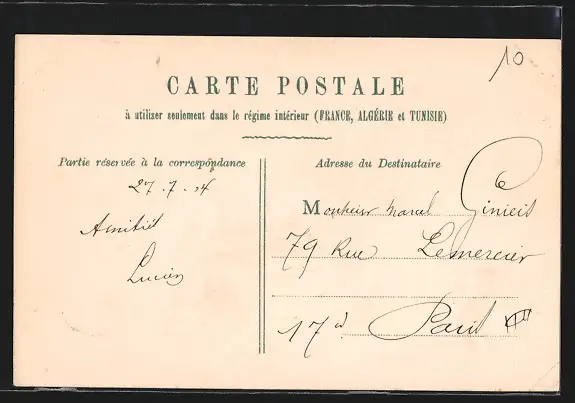 10
CARTE POSTALE
à utiliser seulement dans le régime intérieur (FRANCE, ALGÉRIE et TUNISIE)
Partie réservée à la correspondance
27.7.04
Amitiés
Lucien
Adresse du Destinataire
Monsieur Marcel Ginieis
79 Rue Lemercier
17è Paris